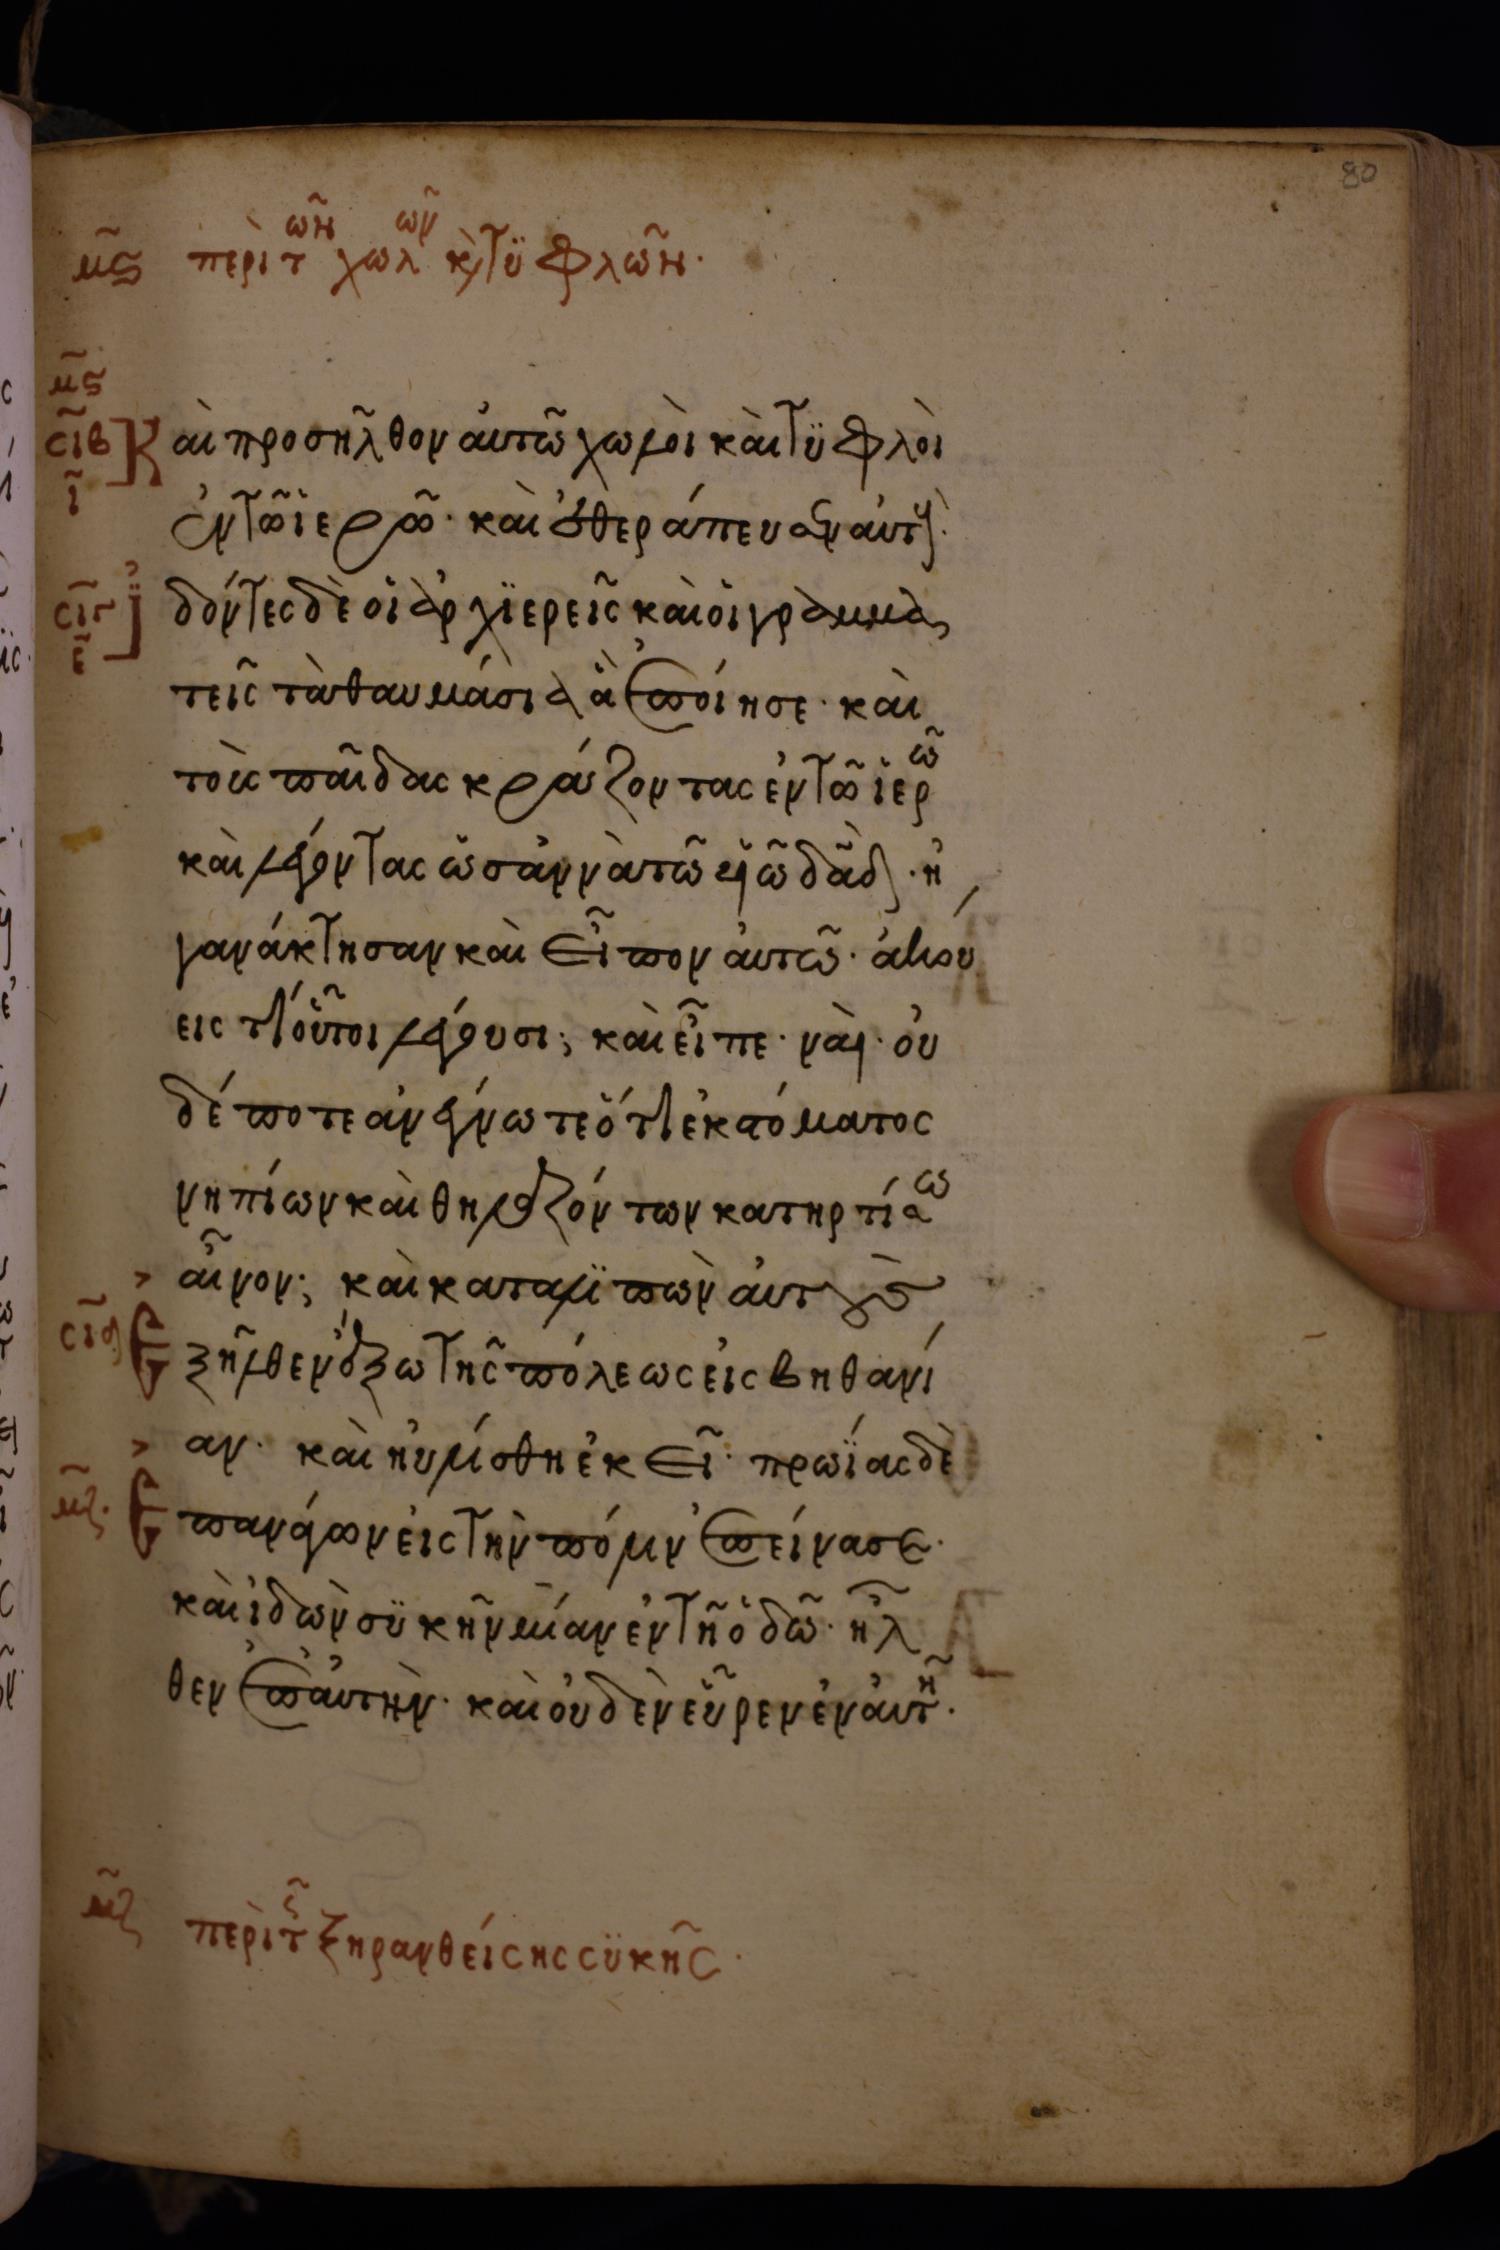 80
μ̃ς περὶ τῶν χωλῶν κ̀ τϋφλῶν·
μ̃ς
σ̃ιβ Καὶ προσῆλθον ἀυτῶ χωλὸι κὰι τϋφλὸι
ῑ ἐν τῶ ἱερῶ· κὰι ἐθεράπευσεν ἀυτούς·
σ̃ιγ ἰδόντες δὲ ὁι ἀρχϊερεῖς κὰι ὁι γραμμα
ε̃ τεῖς τὰ θαυμάσια ἃ ἐποίησε· κὰι
τοὺς παῖδας κράζοντας ἐν τῶ ἱερῶ
κὰι λέγοντας ὡσἀννὰ τῶ υἱῶ δα̃δ· ἠ
γανάκτησαν κὰι εἶπον ἀυτῶ· ἀκού
εις τί οὗτοι λέγουσι; κὰι εἶπε· νάι· ὀυ
δέποτε ἀνέγνωτε ὅτι ἐκ στόματος
νηπίων κὰι θηλαζόντων κατηρτίσω
αἶνον; κὰι καταλϊπὼν ἀυτοὺς
σ̃ιδ ἐξῆλθεν ἔξω τῆς πόλεως ἐις βηθανί
αν· κὰι ηὐλίσθη ἐκεῖ· πρωΐας δὲ
μ̃ζ· ἐπανάγων ἐις τὴν πόλιν ἐπείνασε·
κὰι ἰδὼν σϋκῆν μίαν ἐν τῆ ὁδῶ· ἦλ
θεν ἐπ' ἀυτὴν· κὰι ὀυδὲν εὗρεν ἐν ἀυτῆ·
μ̃ζ περὶ τῆς ξηρανθείσης σϋκῆς·